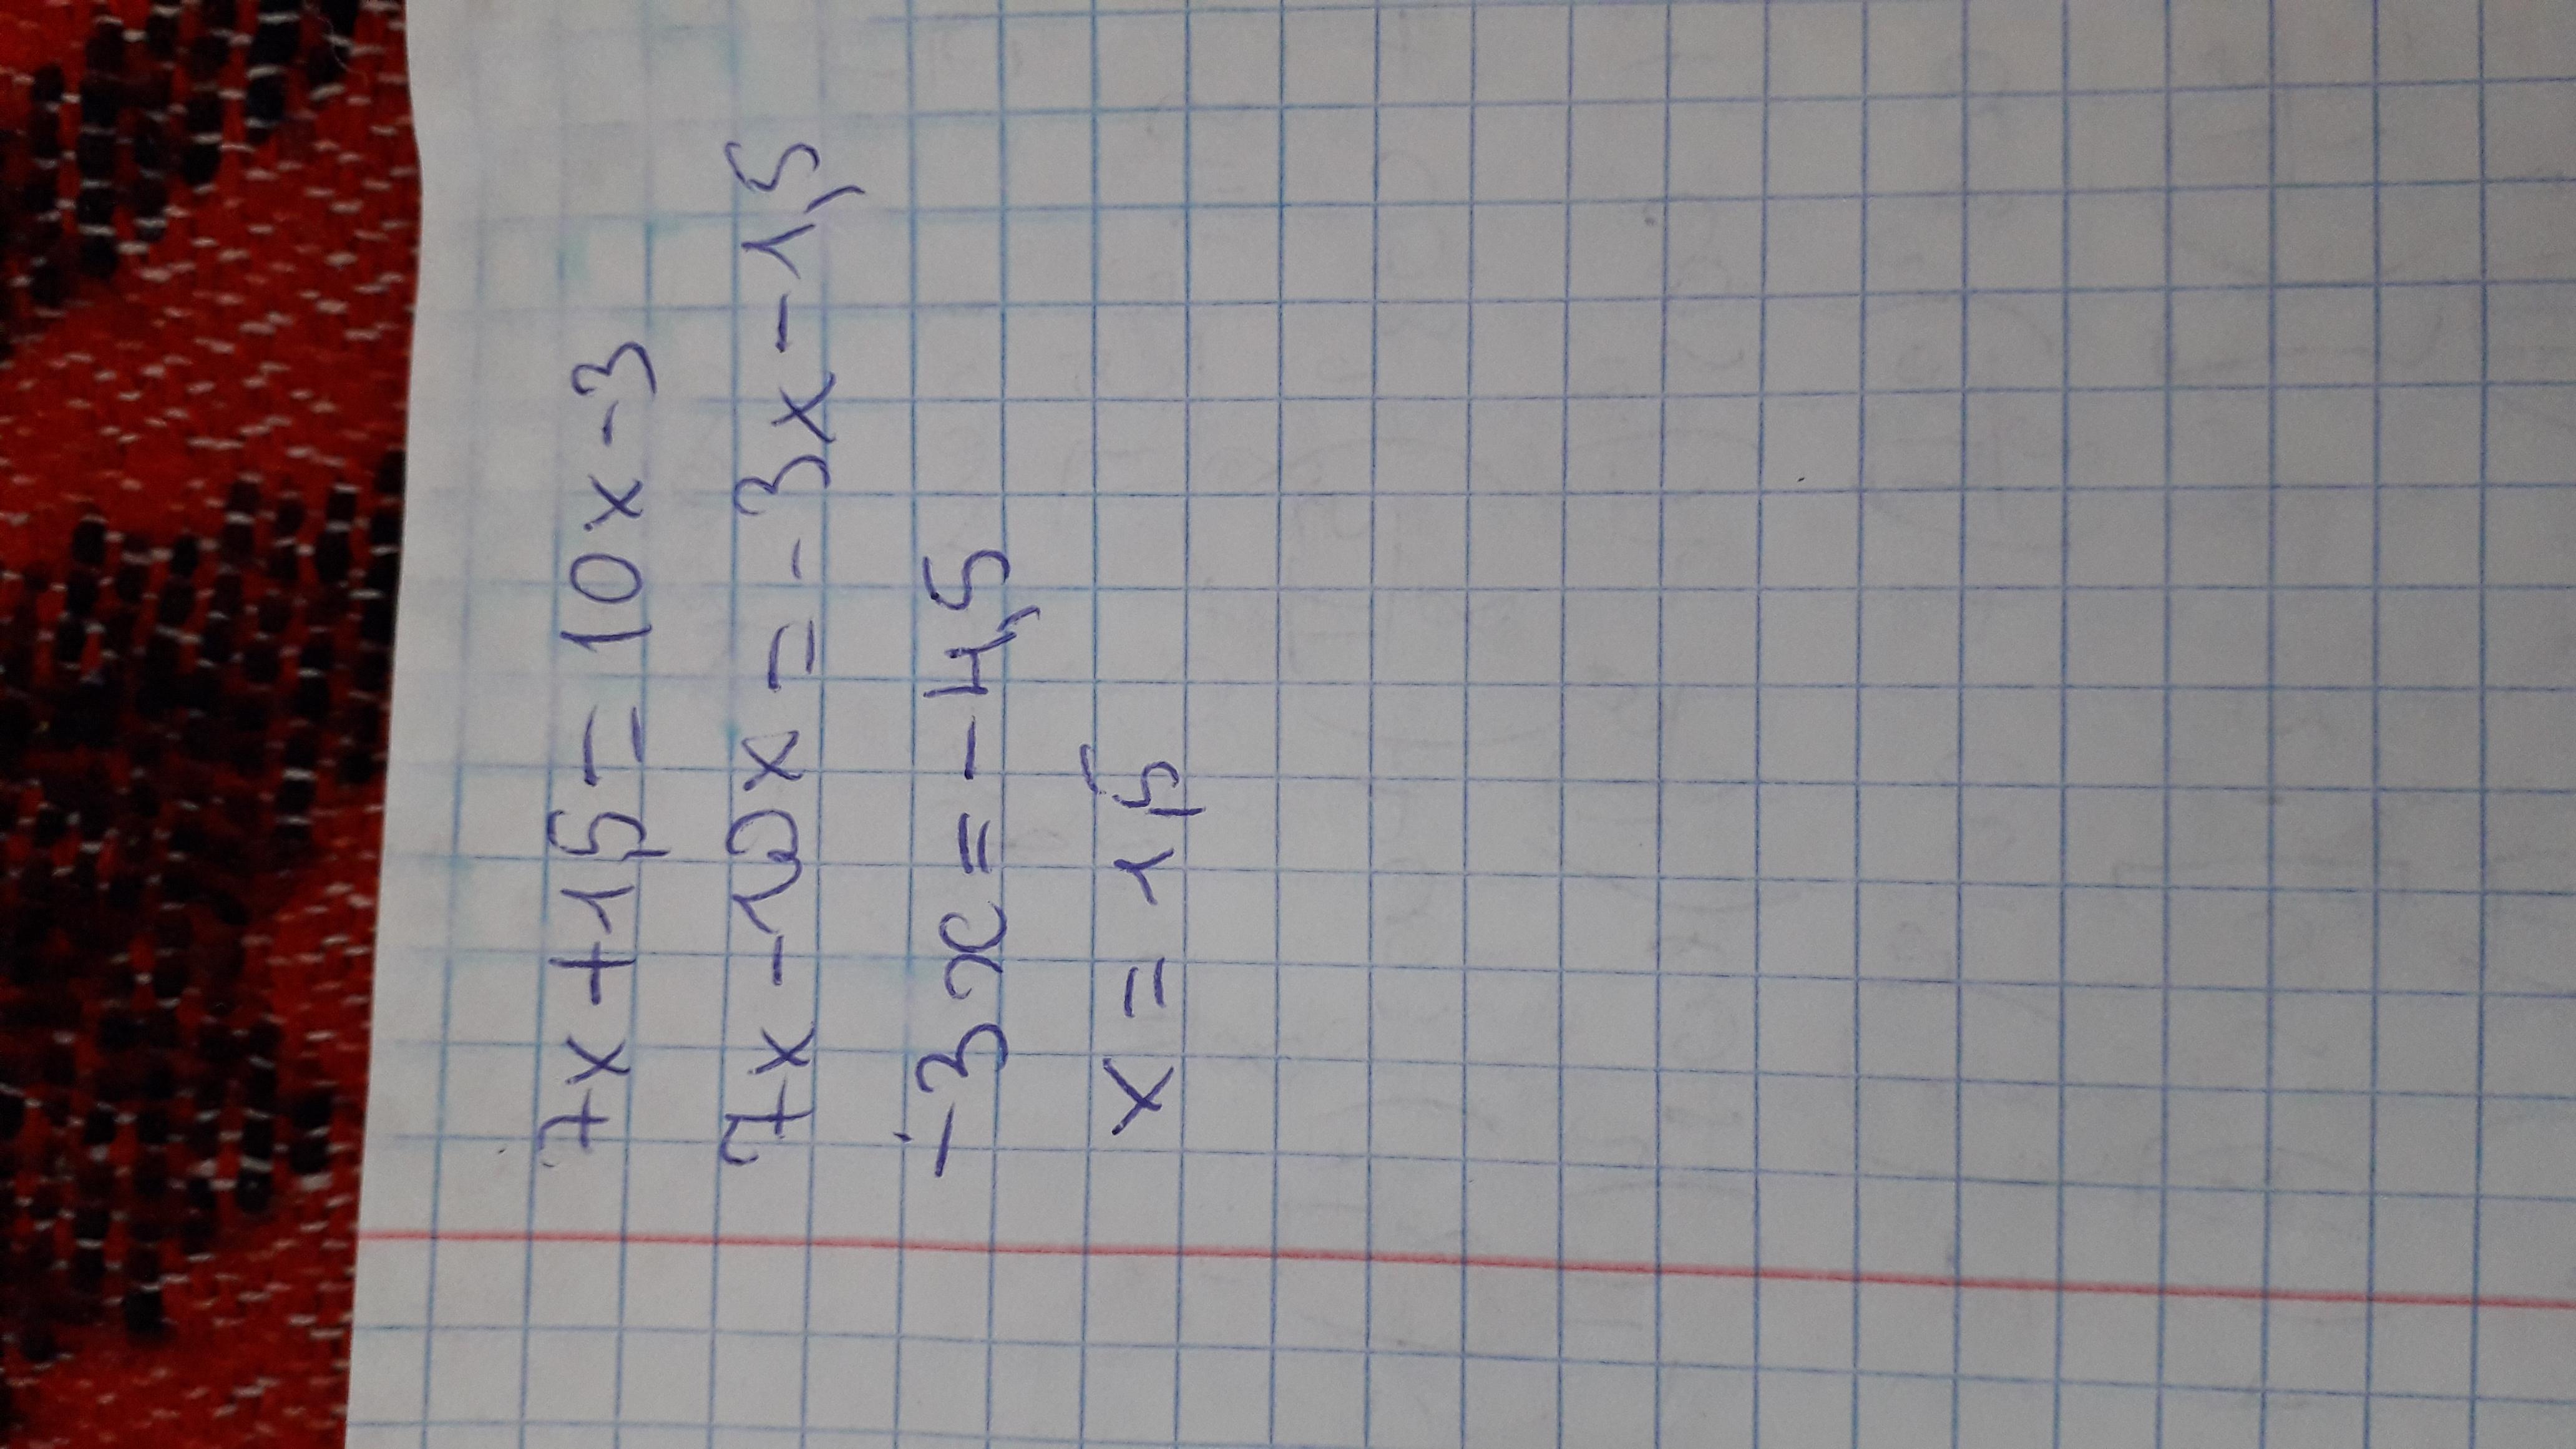 7x+1,5=10x-3
7x-10x=-3x-1,5
-3x=-4,5
x=1,5